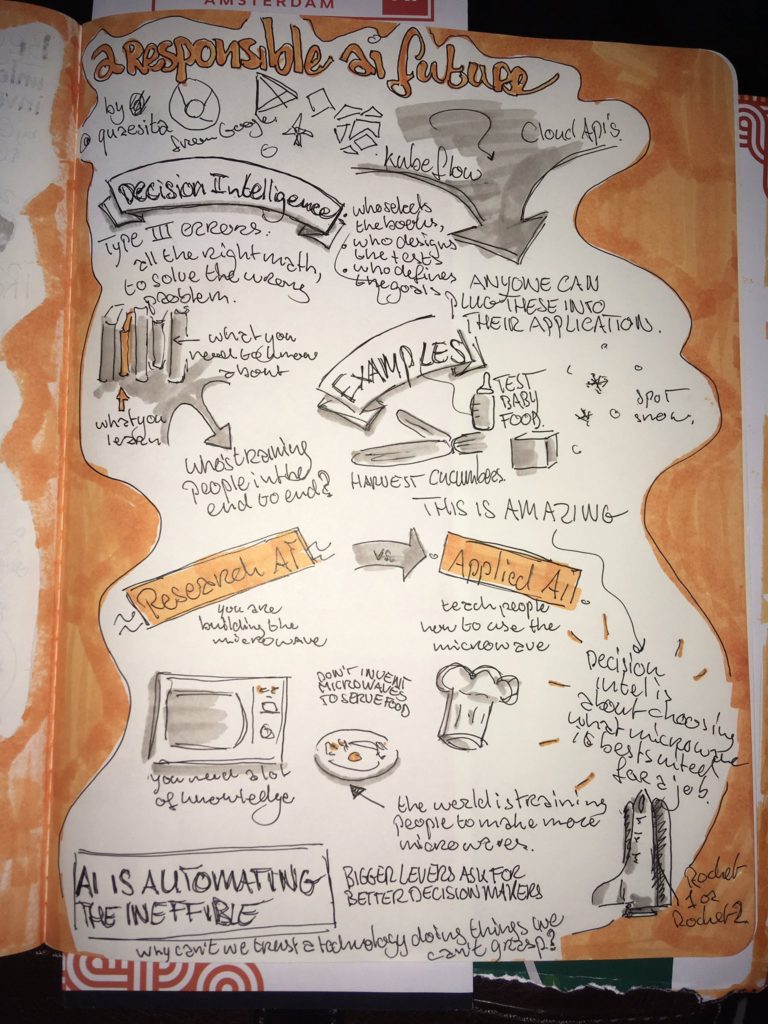 AMSTERDAM
a Responsible ai future
by
@quaesita
from Google
Kubeflow
Cloud Api's
Decision Intelligence
Type III errors:
all the right math,
to solve the wrong
problem.
• who selects
the books,
• who designs
the tests
• who defines
the goals
ANYONE CAN
PLUG THESE INTO
THEIR APPLICATION.
what you
need to know
about
what you
learn
who's training
people in the
end to end?
EXAMPLES
TEST
BABY
FOOD.
SPOT
snow.
HARVEST CUCUMBERS.
THIS IS AMAZING
Research AI
vs.
Applied AI
you are
building the
microwave
teach people
how to use the
microwave
Decision
intel is
about choosing
what microwave
is best suited
for a job.
DON'T INVENT
MICROWAVES
TO SERVE FOOD
you need a lot
of knowledge
the world is training
people to make more
microwaves.
Rocket
1 or
Rocket 2
AI IS AUTOMATING
THE INEFFIBLE
BIGGER LEVERS ASK FOR
BETTER DECISION MAKERS
why can't we trust a technology doing things we
can't grasp?